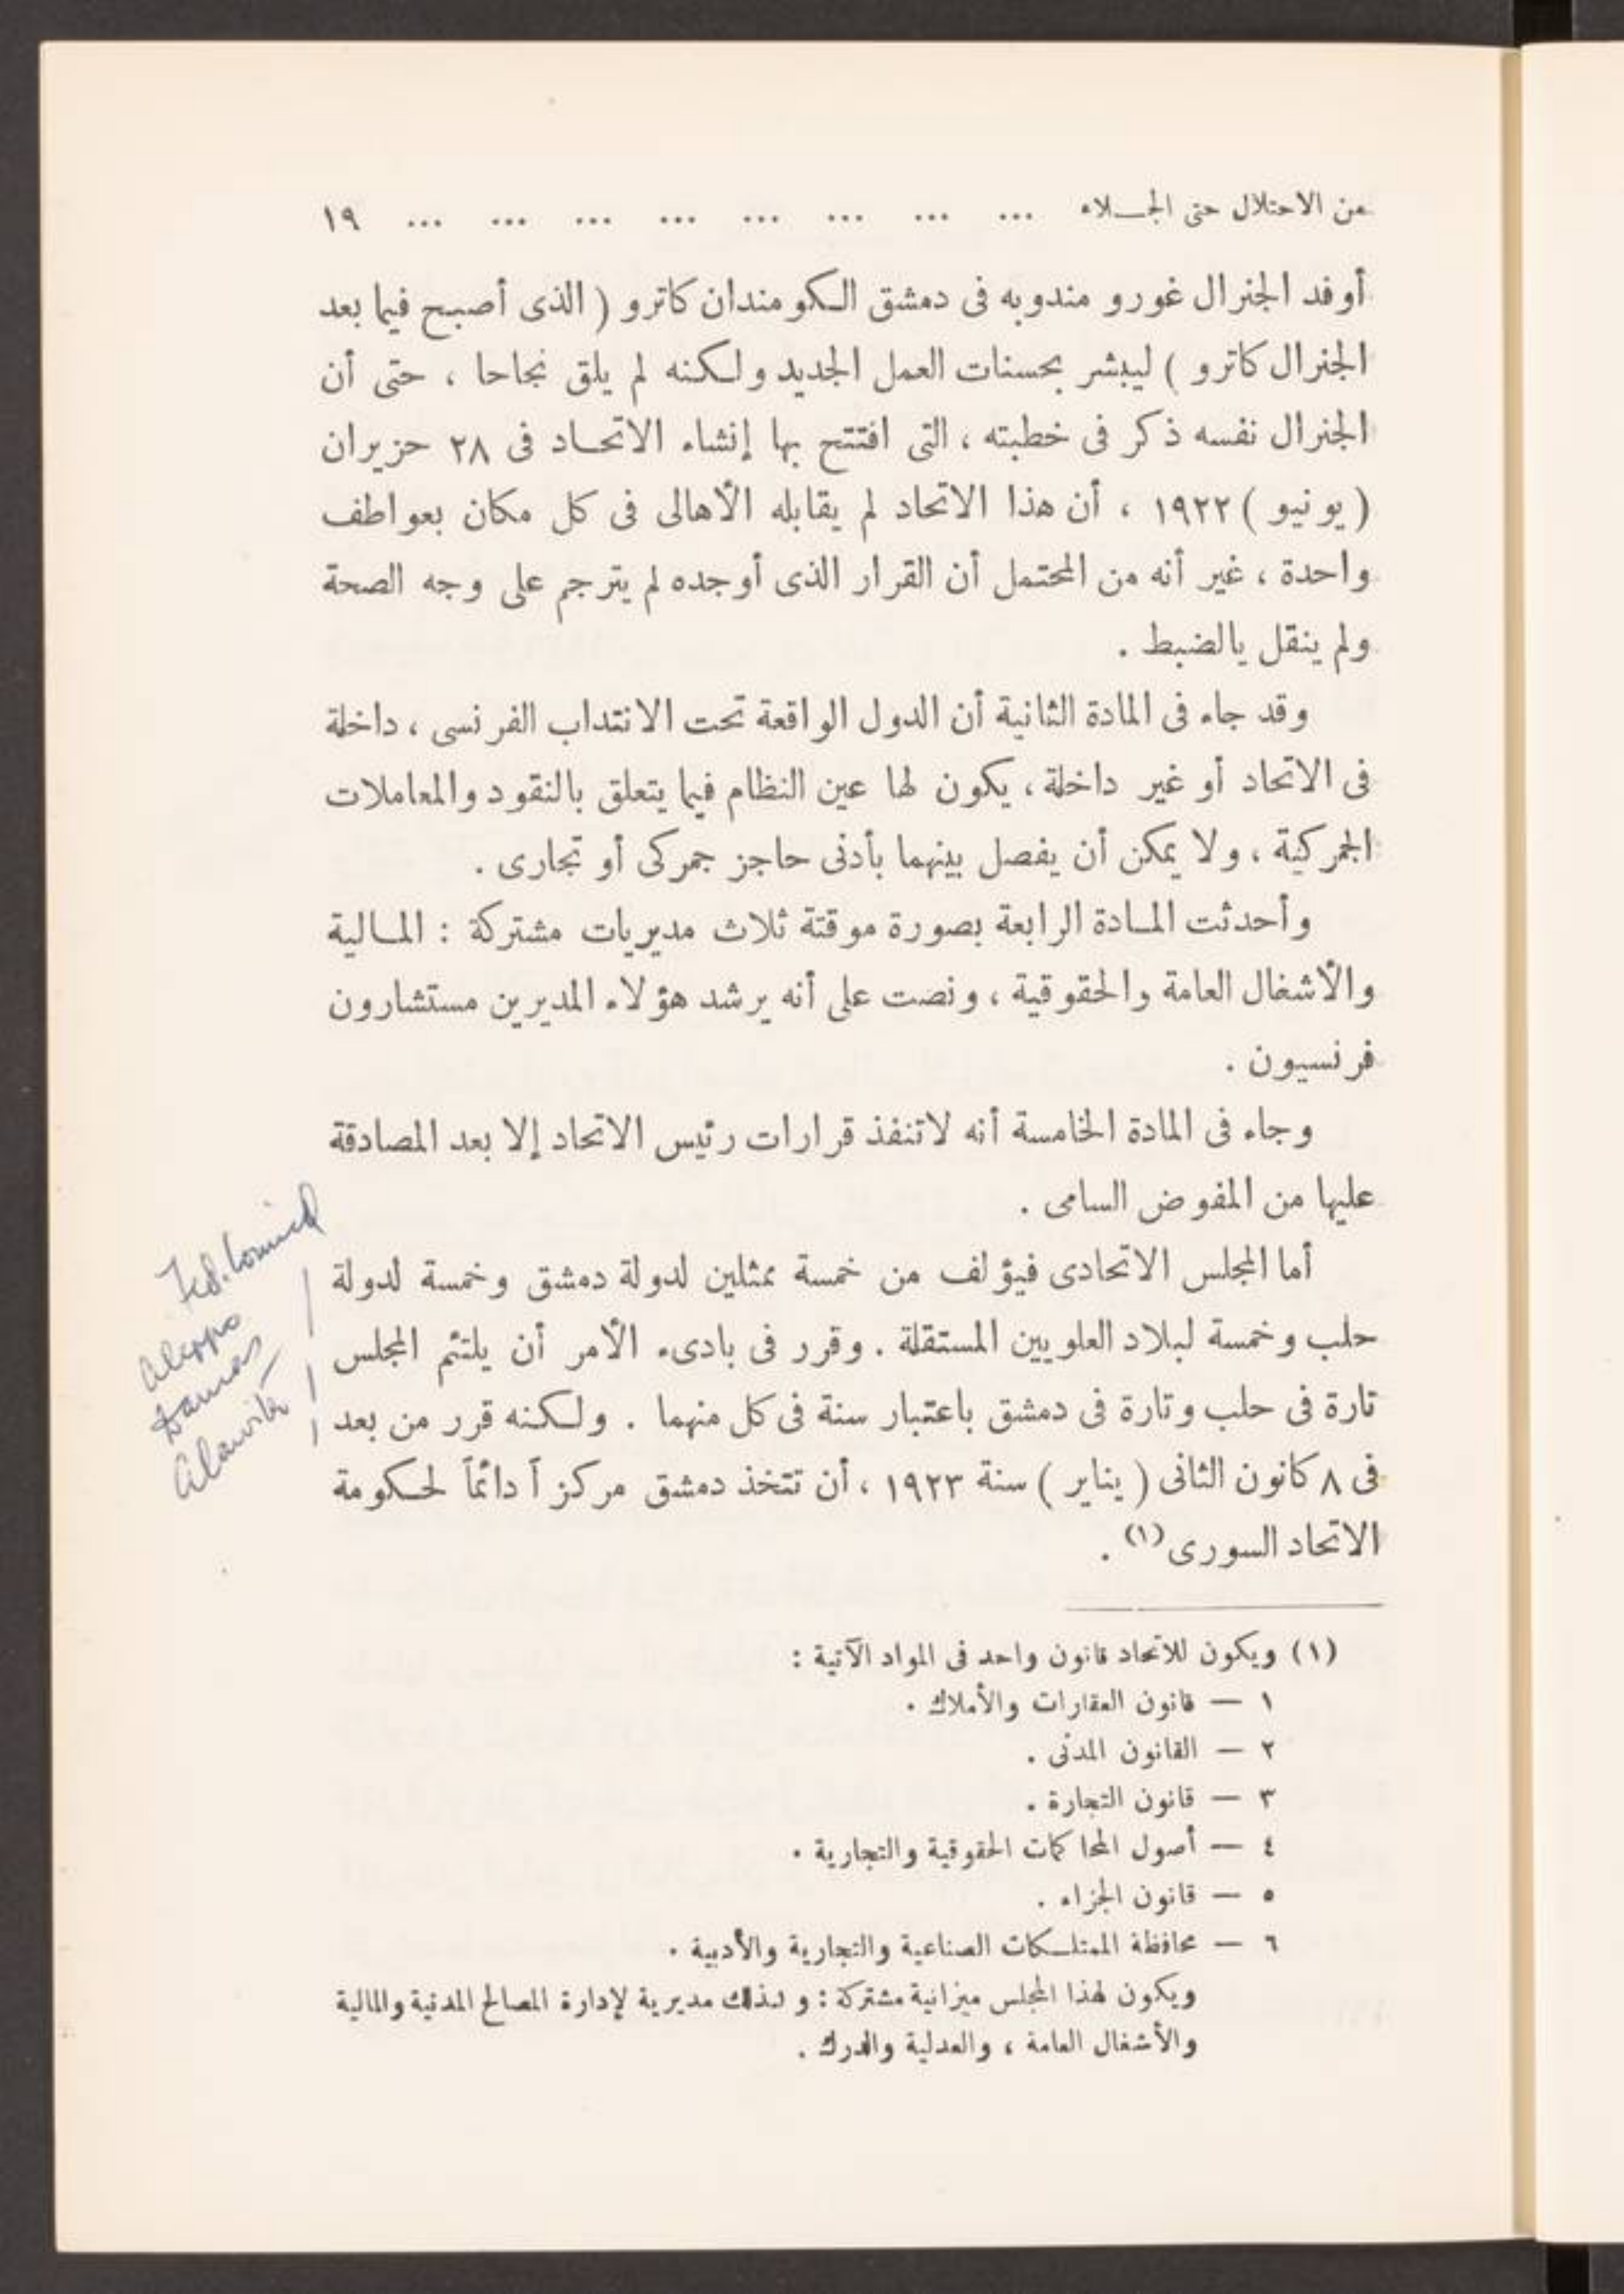 من الاحتلال حتى الجـــلاء ... ... ... ... ... ... ... ... ١٩
أوفد الجنرال غورو مندوبه فى دمشق الكومندان كاترو ( الذى أصبح فيما بعد
الجنرال كاترو ) ليبشر بحسنات العمل الجديد ولكنه لم يلق نجاحا ، حتى أن
الجنرال نفسه ذكر فى خطبته ، التى افتتح بها إنشاء الاتحاد فى ٢٨ حزيران
( يونيو ) ١٩٢٢ ، أن هذا الاتحاد لم يقابله الأهالى فى كل مكان بعواطف
واحدة ، غير أنه من المحتمل أن القرار الذى أوجده لم يترجم على وجه الصحة
ولم ينقل يالضبط .
وقد جاء فى المادة الثانية أن الدول الواقعة تحت الانتداب الفرنسى ، داخلة
فى الاتحاد أو غير داخلة ، يكون لها عين النظام فيما يتعلق بالنقود والمعاملات
الجمركية ، ولا يمكن أن يفصل بينهما بأدنى حاجز جمركى أو تجارى .
وأحدثت المادة الرابعة بصورة موقتة ثلاث مديريات مشتركة : المالية
والأشغال العامة والحقوقية ، ونصت على أنه يرشد هؤلاء المديرين مستشارون
فرنسيون .
وجاء فى المادة الخامسة أنه لاتنفذ قرارات رئيس الاتحاد إلا بعد المصادقة
عليها من المفوض السامى .
أما المجلس الاتحادى فيؤلف من خمسة ممثلين لدولة دمشق وخمسة لدولة
حلب وخمسة لبلاد العلويين المستقلة . وقرر فى بادىء الأمر أن يلتئم المجلس
تارة فى حلب وتارة فى دمشق باعتبار سنة فى كل منهما . ولكنه قرر من بعد
فى ٨ كانون الثانى ( يناير ) سنة ١٩٢٣ ، أن تتخذ دمشق مركزاً دائماً لحكومة
الاتحاد السورى (١) .
Fed. Council
Aleppo
Damas
Alawite
(١) ويكون للاتحاد قانون واحد فى المواد الآتية :
١ — قانون العقارات والأملاك .
٢ — القانون المدنى .
٣ — قانون التجارة .
٤ — أصول المحاكمات الحقوقية والتجارية .
٥ — قانون الجزاء .
٦ — محافظة الممتلكات الصناعية والتجارية والأدبية .
ويكون لهذا المجلس ميزانية مشتركة : و لذلك مديرية لإدارة المصالح المدنية والمالية
والأشغال العامة ، والعدلية والدرك .